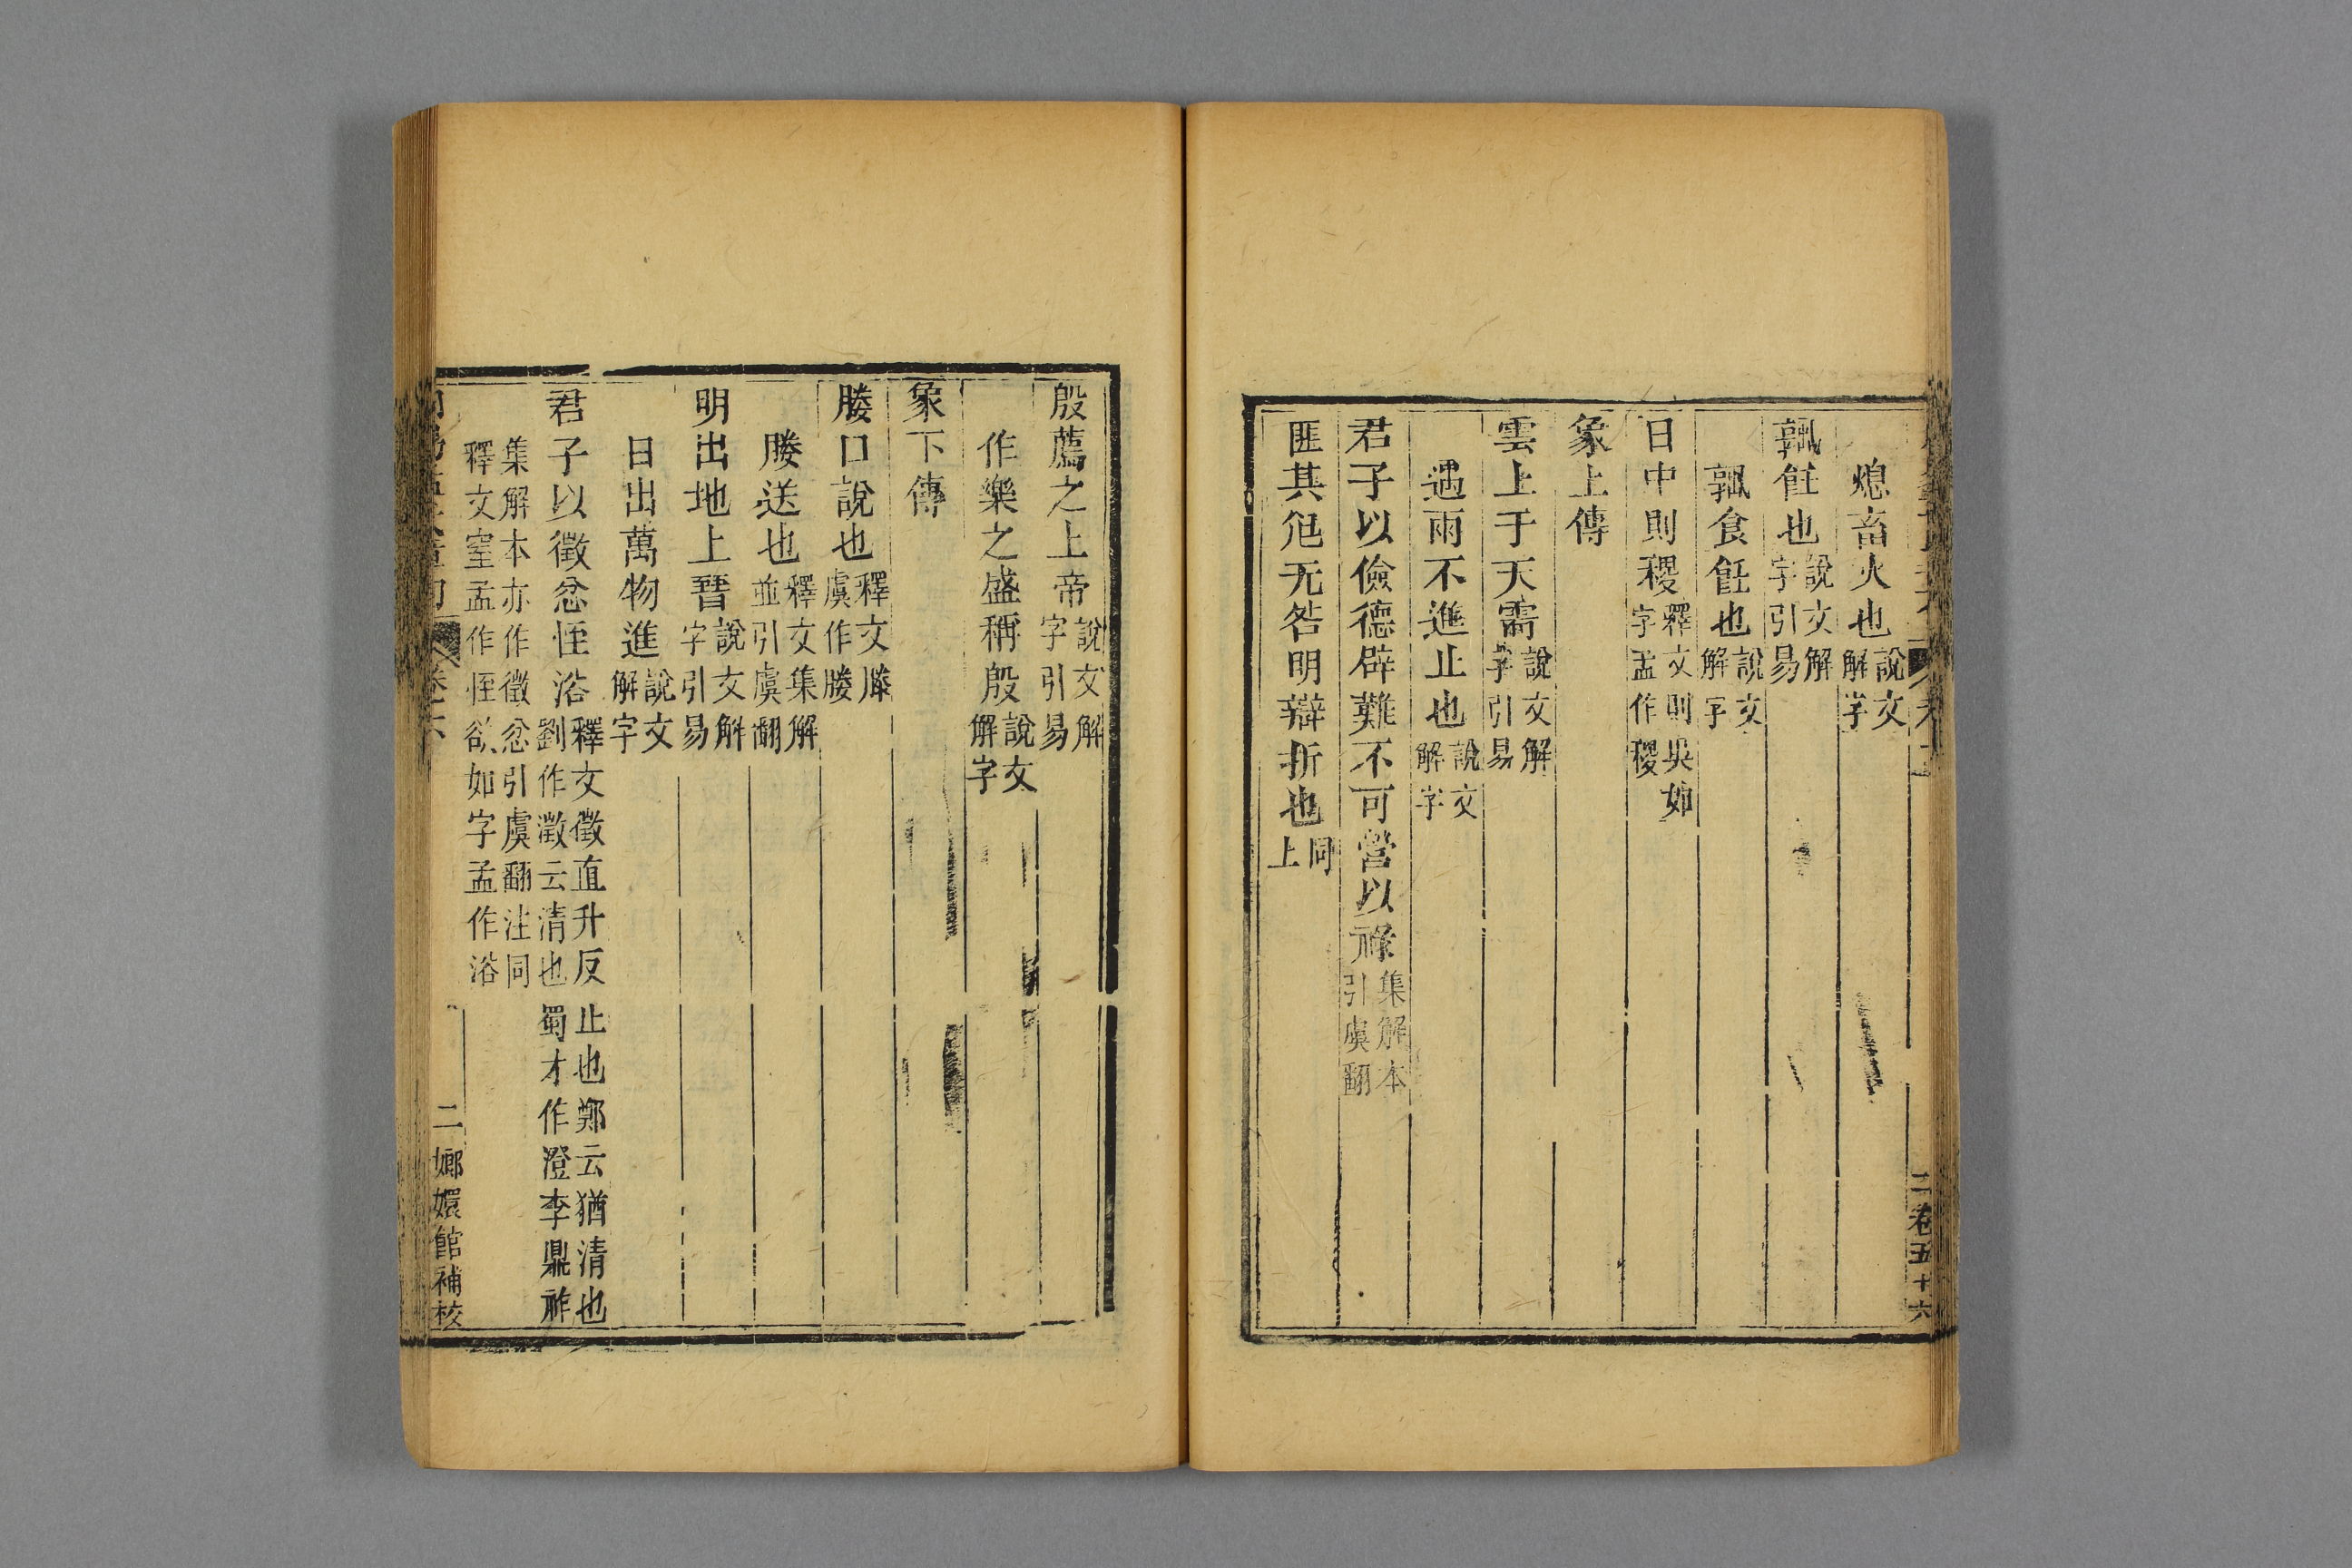 熄畜火也說文解字
𩛩飪也說文解字引易
𩛩食飪也說文解字
日中則稷釋文則吳如字孟作稷
象上傳
雲上于天需說文解字引易
遇雨不進止也說文解字
君子以儉德辟難不可營以祿集解本引虞翻
匪其尪无咎明辯折也同上
二卷五十六
殷薦之上帝說文解字引易
作樂之盛稱殷說文解字
象下傳
媵口說也釋文滕虞作媵
媵送也釋文集解並引虞翻
明出地上㬜說文解字引易
日出萬物進說文解字
君子以徵忿恎浴釋文徵直升反止也鄭云猶清也劉作澂云清也蜀才作澄李鼎祚
集解本亦作徵忿引虞翻注同釋文窒孟作恎欲如字孟作浴
卷六
二
嫏嬛館補校